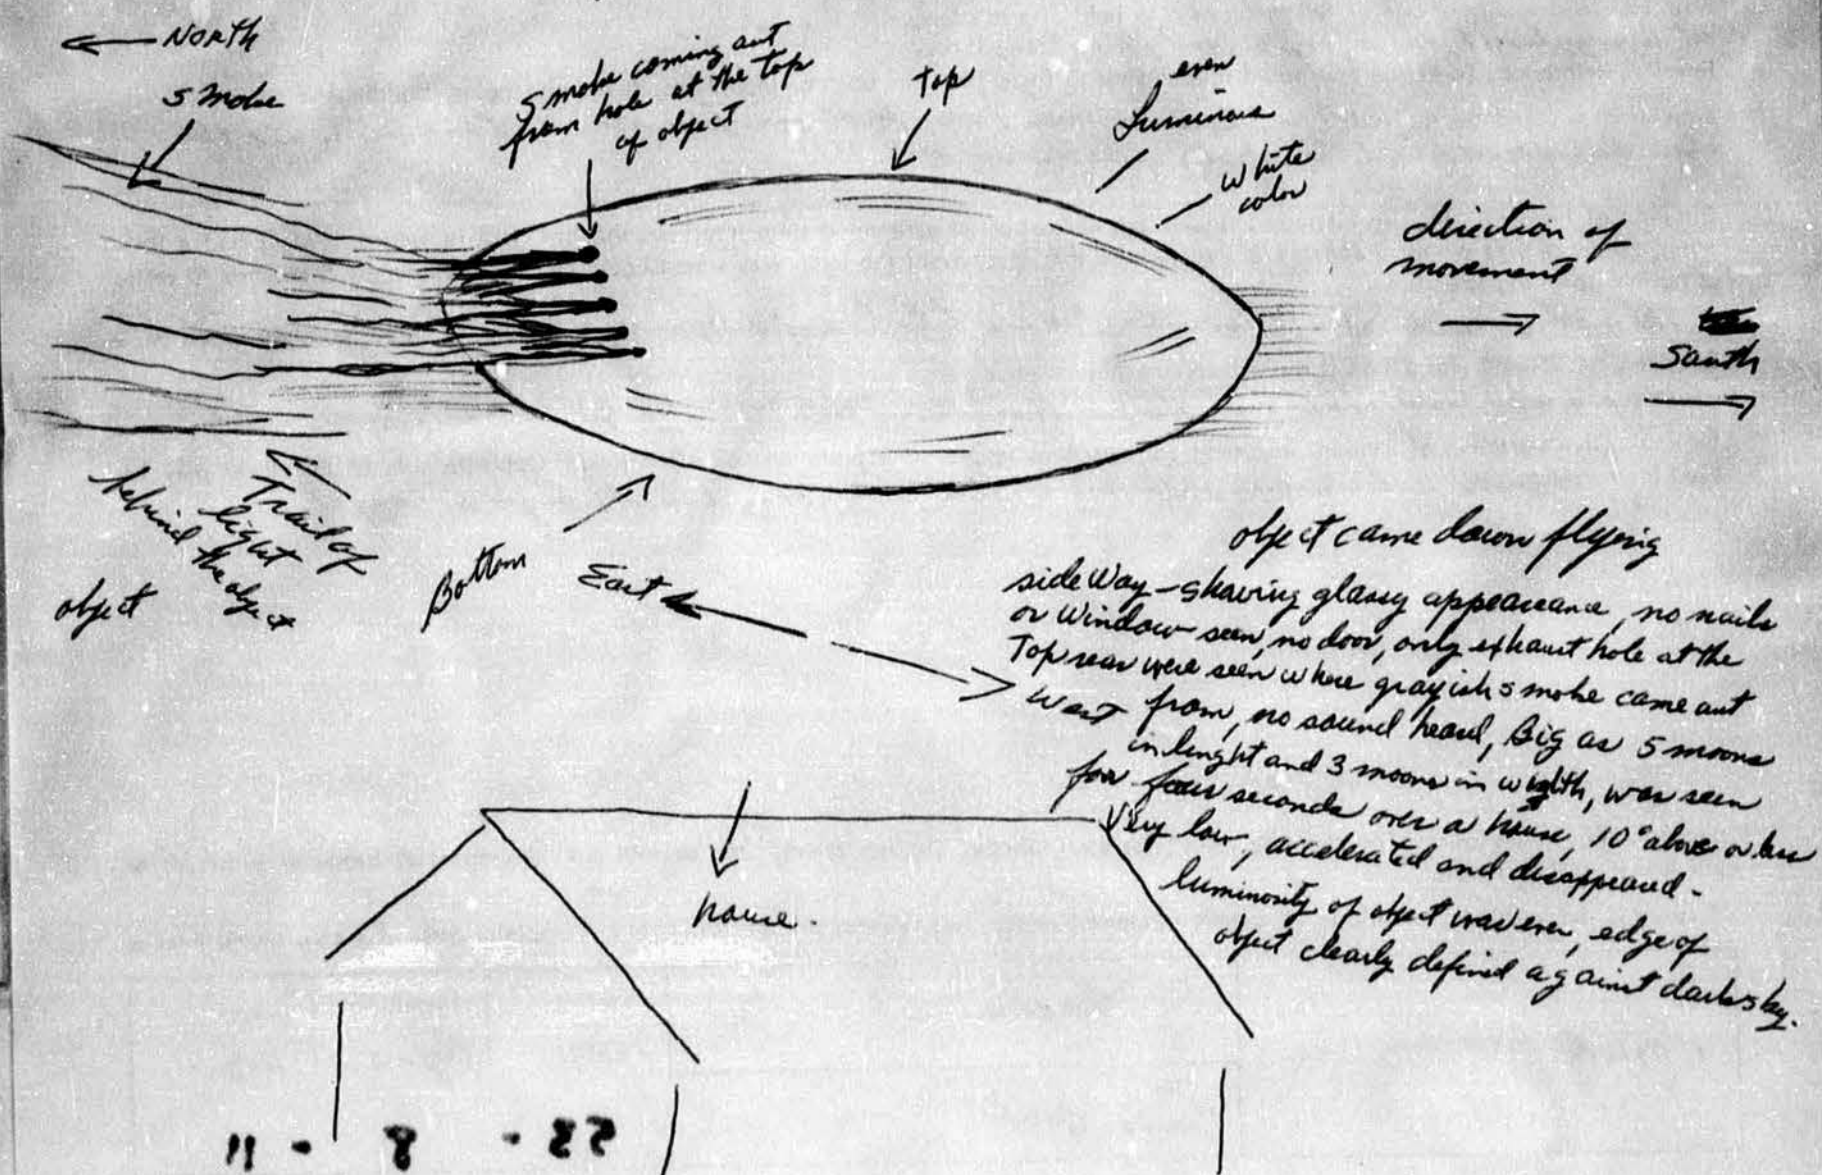 North
smoke
smoke coming out
from hole at the top
of object
Top
even
Luminous
white
color
direction of
movement
South
Trail of
light
behind the object
object
Bottom
East
West
object came down flying
side way - shaving glassy appearance, no nails
or window seen, no door, only exhaust hole at the
Top rear were seen where grayish smoke came out
from, no sound heard, Big as 5 moons
in lenght and 3 moons in width, was seen
for four seconds over a house, 10° above or less
Very low, accelerated and disappeared -
luminosity of object was even, edge of
object clearly defined against dark sky.
house.
11 - 8 - 53